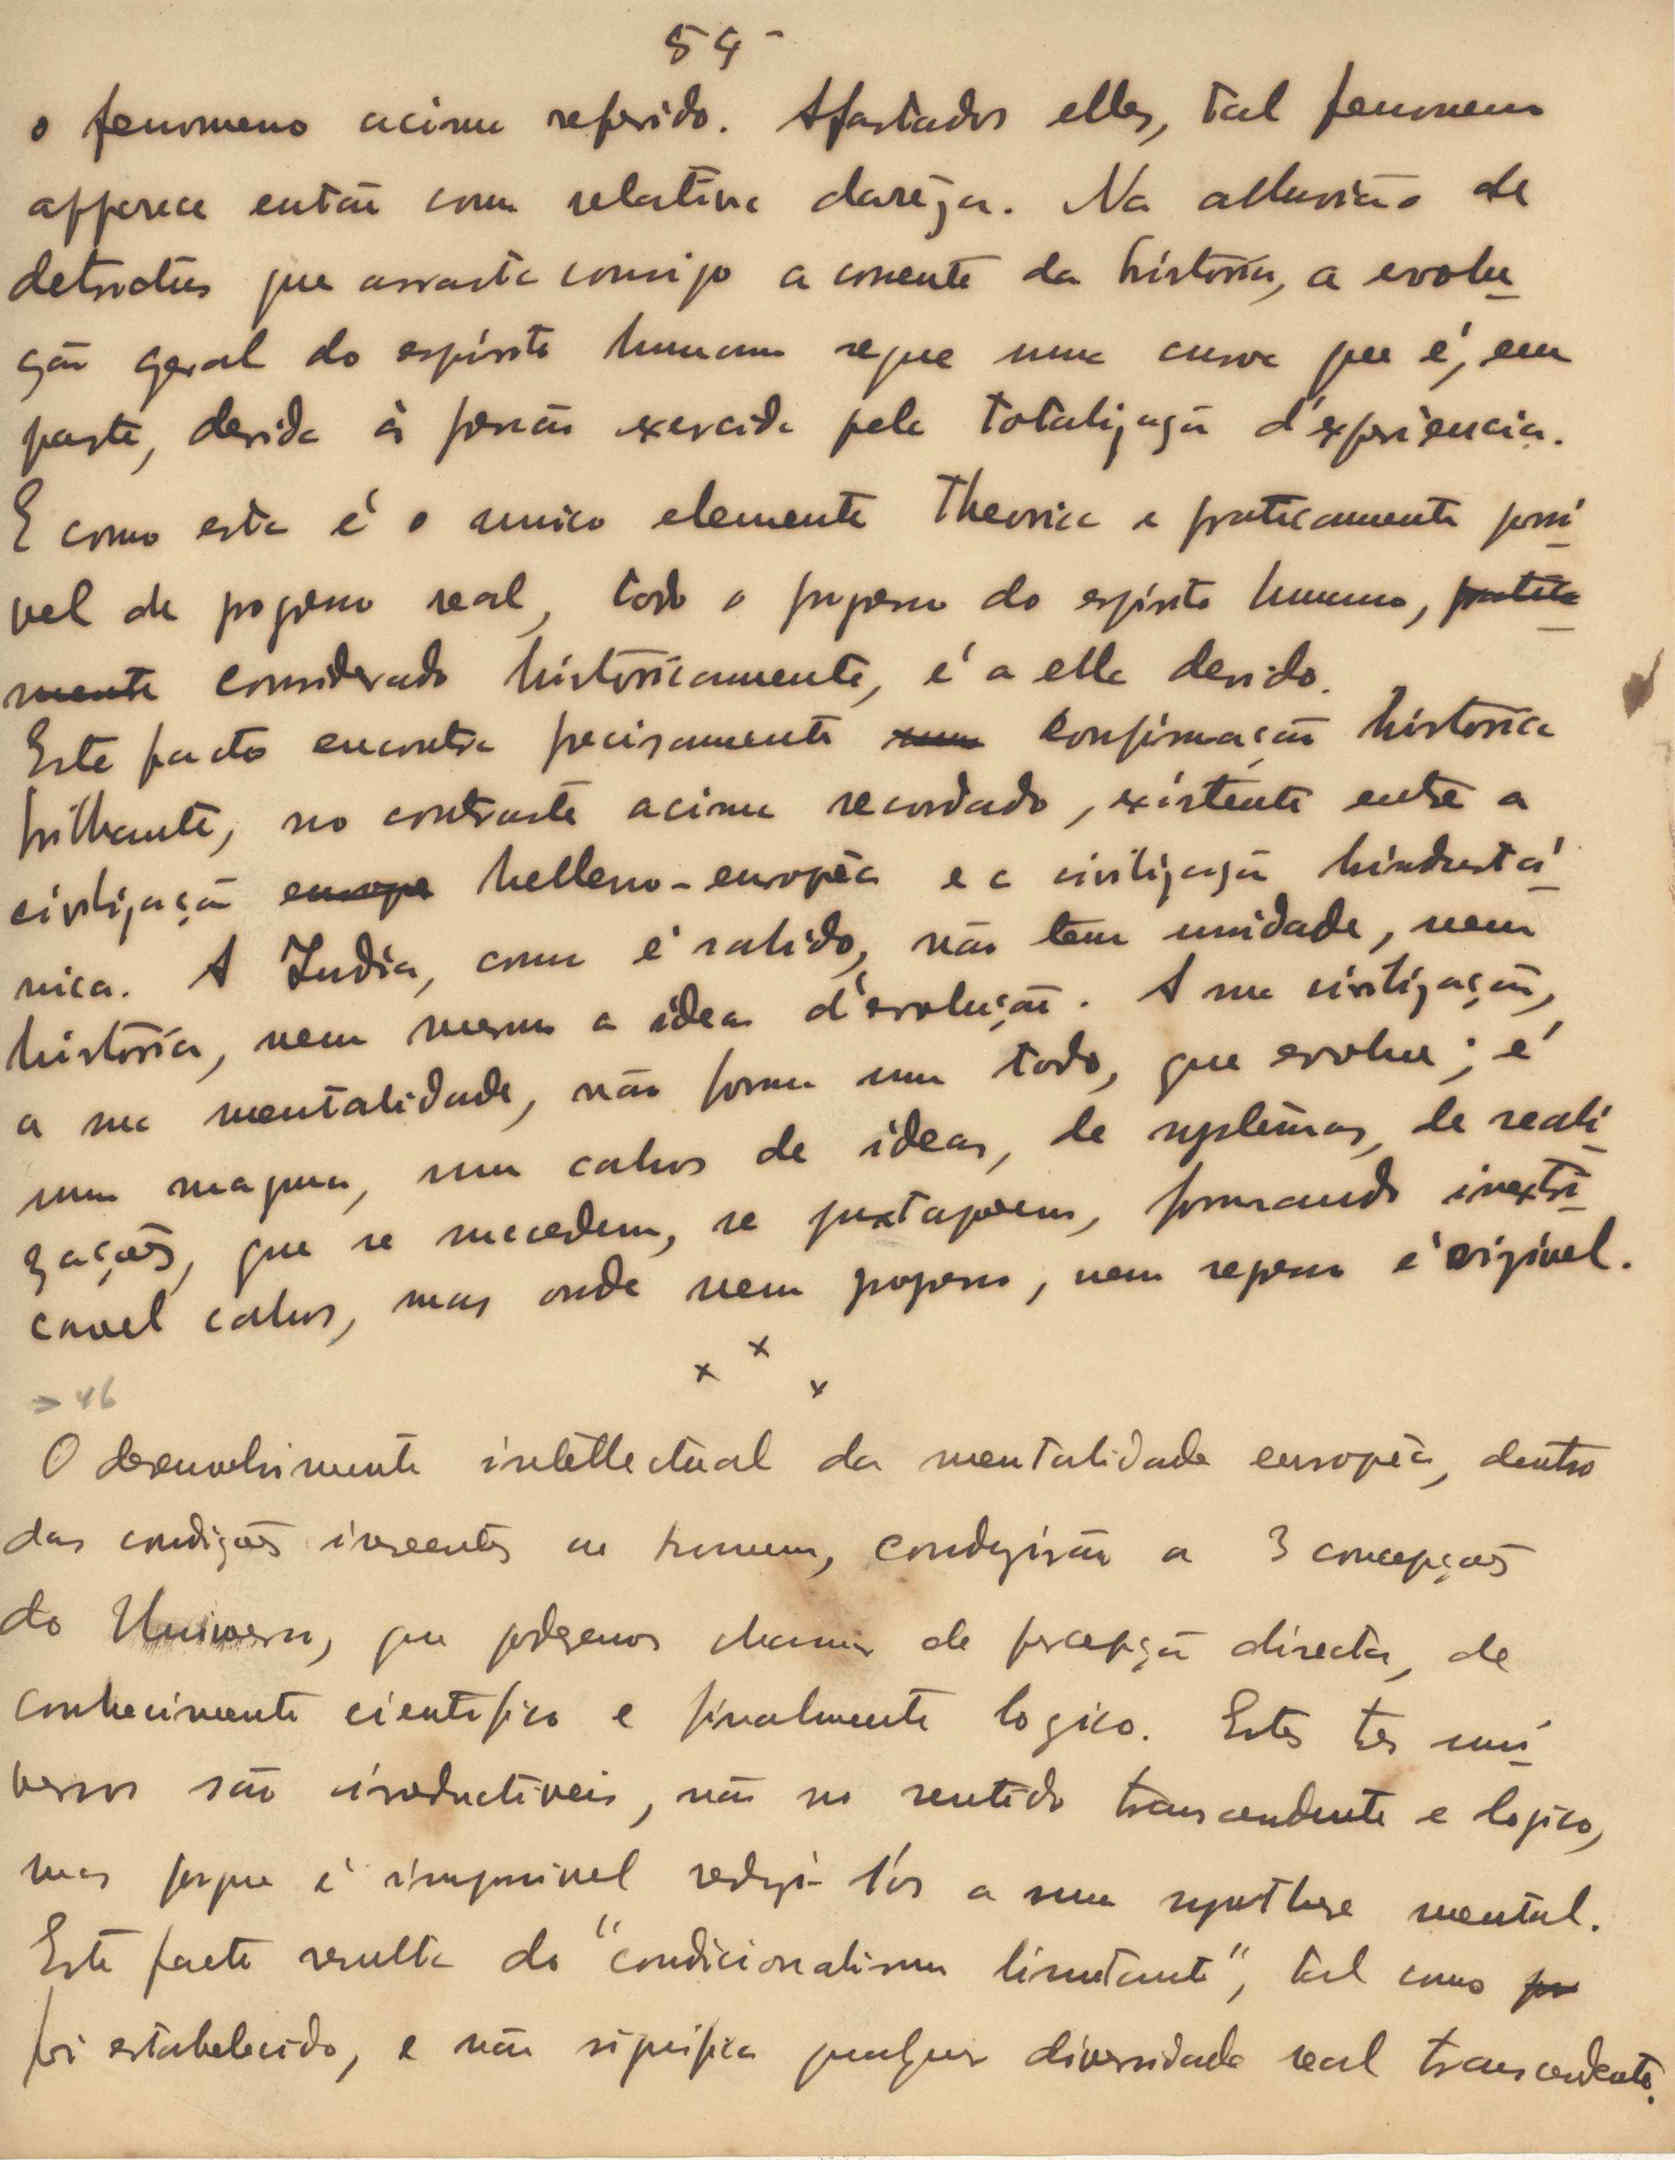 54-
o fenomeno acima referido. Afastados elles, tal fenomeno
apparece então com relativa clareza. Na alluvião de
detrictos que arrasta comsigo a corrente da historia, a evolu-
ção geral do espirito humano segue uma curva que é, em
parte, devida á pressão exercida pela totalização d'experiencia.
E como esta é o unico elemento theorica e praticamente possi-
vel de progresso real, todo o progresso do espirito humano, pratica-
mente considerado historicamente, é a ella devido.
Este facto encontra precisamente uma confirmação historica
brilhante, no contraste acima recordado, existente entre a
civilização europe helleno-europêa e a civilização hindustá-
nica. A India, como é sabido, não tem unidade, nem
historia, nem mesmo a idea d'evolução. A sua civilização,
a sua mentalidade, não forma um todo, que evolue; é
um magma, um cahos de ideas, de systemas, de reali-
zações, que se succedem, se juxtapoem, formando inextri-
cavel cahos, mas onde nem progresso, nem regresso é vizivel.
x x x
→ 46
O desenvolvimento intellectual da mentalidade europêa, dentro
das condições inherentes ao homem, conduzirão a 3 concepções
do Universo, que podemos chamar de percepção directa, de
conhecimento cientifico e finalmente logico. Estes tres uni-
versos são irreductiveis, não no sentido transcendente e logico,
mas porque é impossivel reduzi-los a uma synthese mental.
Este facto resulta do "condicionalismo limitante", tal como
foi estabelecido, e não significa qualquer diversidade real transcendente.